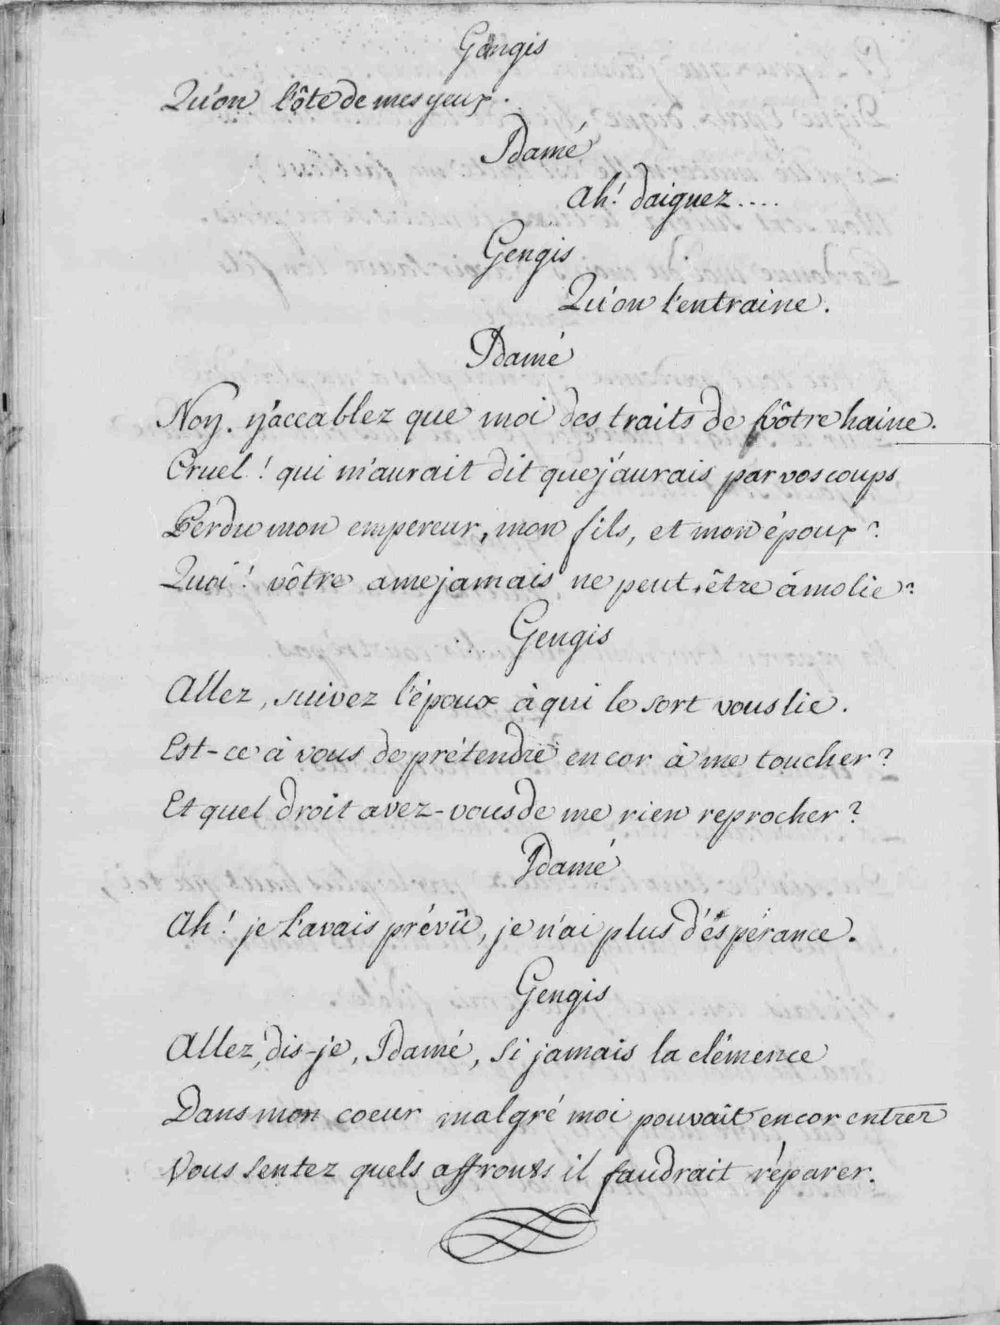 Gengis
Qu'on l'ôte de mes yeux.
Idamé
Ah! daignez....
Gengis
Qu'on l'entraine.
Idamé
Non. n'accablez que moi des traits de vôtre haine.
Cruel! qui m'aurait dit que j'aurais par vos coups
Perdu mon empereur, mon fils, et mon époux?
Quoi! vôtre ame jamais ne peut être amolie?
Gengis
Allez, suivez l'époux à qui le sort vous lie.
Est-ce à vous de prétendre encor à me toucher?
Et quel droit avez-vous de me rien reprocher?
Idamé
Ah! je l'avais prévû, je n'ai plus d'éspérance.
Gengis
Allez, dis-je, Idamé, si jamais la clémence
Dans mon coeur malgré moi pouvait encor entrer
Vous sentez quels affronts il faudrait réparer.